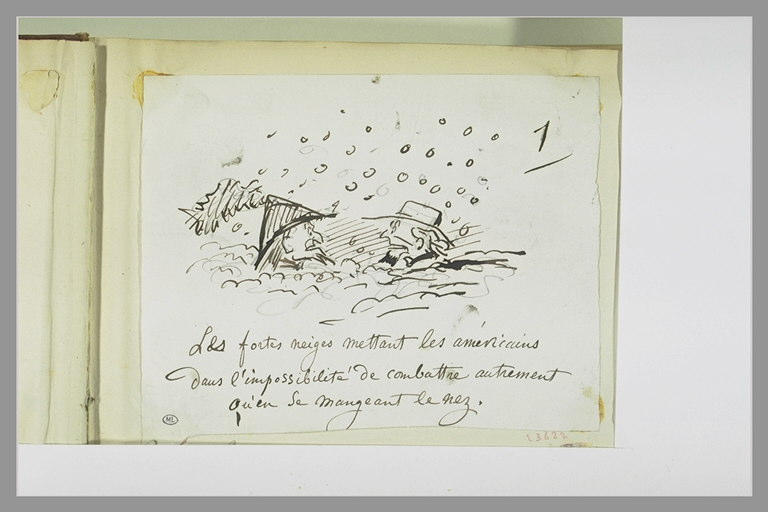 1
Les fortes neiges mettant les américains
Dans l'impossibilité de combattre autrement
qu'en se mangeant le nez.
ML
23622